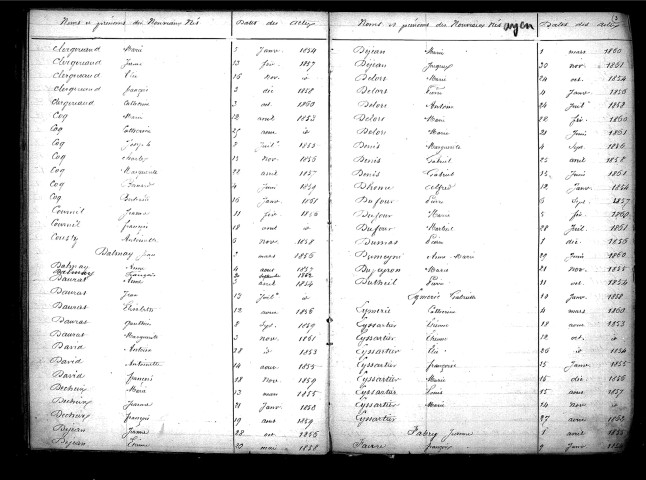 Noms et prénoms des Nouveaux Nés Dates des Actes
Clergeaud Marie 5 Janv. 1854
Clergeaud Jeanne 13 fév. 1857
Clergeaud 16 Nov. id
Clergeaud françois 2 déc 1858
Clergeaud Catherine 3 oct. 1860
Coq Marie 12 août 1853
Coq Catherine 25 id
Coq Joseph 2 Juil. 1855
Coq Charles 13 Nov. 1856
Coq Marguerite 21 avril 1857
Coq 4 Juin 1859
Coq 16 Janv. 1861
Couneil Jeanne 11 fév. 1856
Couneil françois 18 août id
Antoinette 6 Nov. 1858
Dalenay Jean 7 mars 1856
Dalenay Anne 4 1857
Dalenay François 30 1862
Daurat Anne 3 avril 1854
Daurat Jean 17 Juil. id
Daurat Elisabeth 12 avril 1856
Daurat Gauthier 8 Sept. 1859
Daurat Marguerite 3 nov. 1861
David Antoine 28 id 1853
David Antoinette 14 août 1855
David françois 18 Nov. 1859
Decheix Marie 13 mars 1855
Decheix Jeanne 21 Janv. 1858
Decheix françois 19 1859
Dejean Jeanne 28 oct. 1856
Dejean 20 mai 1858
Noms et prénoms des Nouveaux Nés ayen Dates des Actes 2
Dejean Marie 1 mars 1860
Dejean Jacques 30 nov. 1861
Delors Marie 24 oct. 1854
Delors Pierre 4 Janv. 1856
Delors Antoine 24 Juil. 1858
Delors Marie 28 fév. 1860
Delors Marie 21 Juin 1861
Denis Marguerite 4 Sept. 1856
Denis Gabriel 25 août 1858
Denis Gabriel 15 Juin 1861
Dhomme Alfred 12 Janv. 1854
Dufour Pierre 6 Sept. 1857
Dufour Marie 5 fév. 1860
Dufour Martial 28 Juil. 1861
Dumas Pierre 1 déc. 1856
Dumeyni Anne Marie 29 Juin 1860
Dupeyron Marie 21 nov. 1855
Dutheil Pierre 11 oct. 1854
Eymerie Gabrielle 10 Janv. 1858
Eymerie Catherine 4 mars 1860
Eyssartier Etienne 18 août 1853
Eyssartier Etienne 12 oct. id
Eyssartier Elie 26 id 1854
Eyssartier françoise 15 Janv. 1855
Eyssartier Marie 16 déc. 1856
Eyssartier Louis 15 1857
Eyssartier Marie 24 Nov. id
Eyssartier 27 avril 1860
Fabry Jeanne 1 avril 1855
Faure françois 9 Janv.